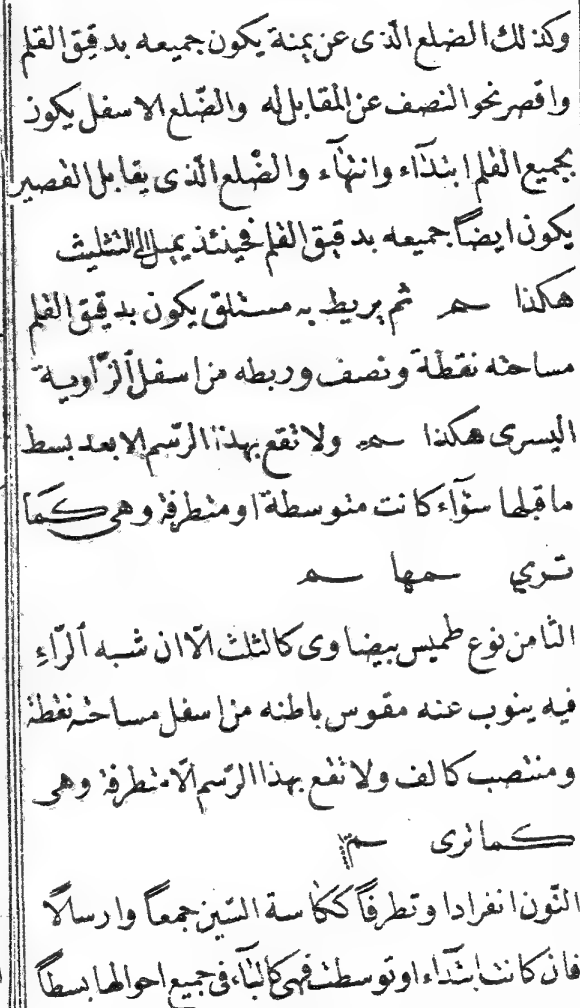 وكذلك الضلع الّذى عن يمنة يكون جميعه بدقيق القلم
واقصر نحو النصف عن المقابل له والضّلع الاسفل يكون
بجميع القلم ابتدآء وانتهآء والضّلع الّذى يقابل القصير
يكون ايضاً جميعه بدقيق القلم فحينئذ يميل الى التثليث
هكذا ـم ثم يربط به مستلق يكون بدقيق القلم
مساحته نقطة ونصف وربطه من اسفل الزّاوية
اليسرى هكذا ـمـ ولا تقع بهذا الرّسم الا بعد بسط
ما قبلها سوآء كانت متوسطة او متطرفة وهى كما
ترى ـمها ـم
الثامن نوع طميس بيضاوى كالثلث الّا ان شبه الرّاءِ
فيه ينوب عنه مقوس باطنه من اسفل مساحته نقطة
ومنتصب كالف ولا تقع بهذا الرّسم الّا متطرفة وهى
كما ترى ـم
النّون انفرادا وتطرفاً ككاسة السّين جمعاً وارسالًا
فان كانت ابتدآء او توسطت فهى كالبآء فى جميع احوالها بسطاً